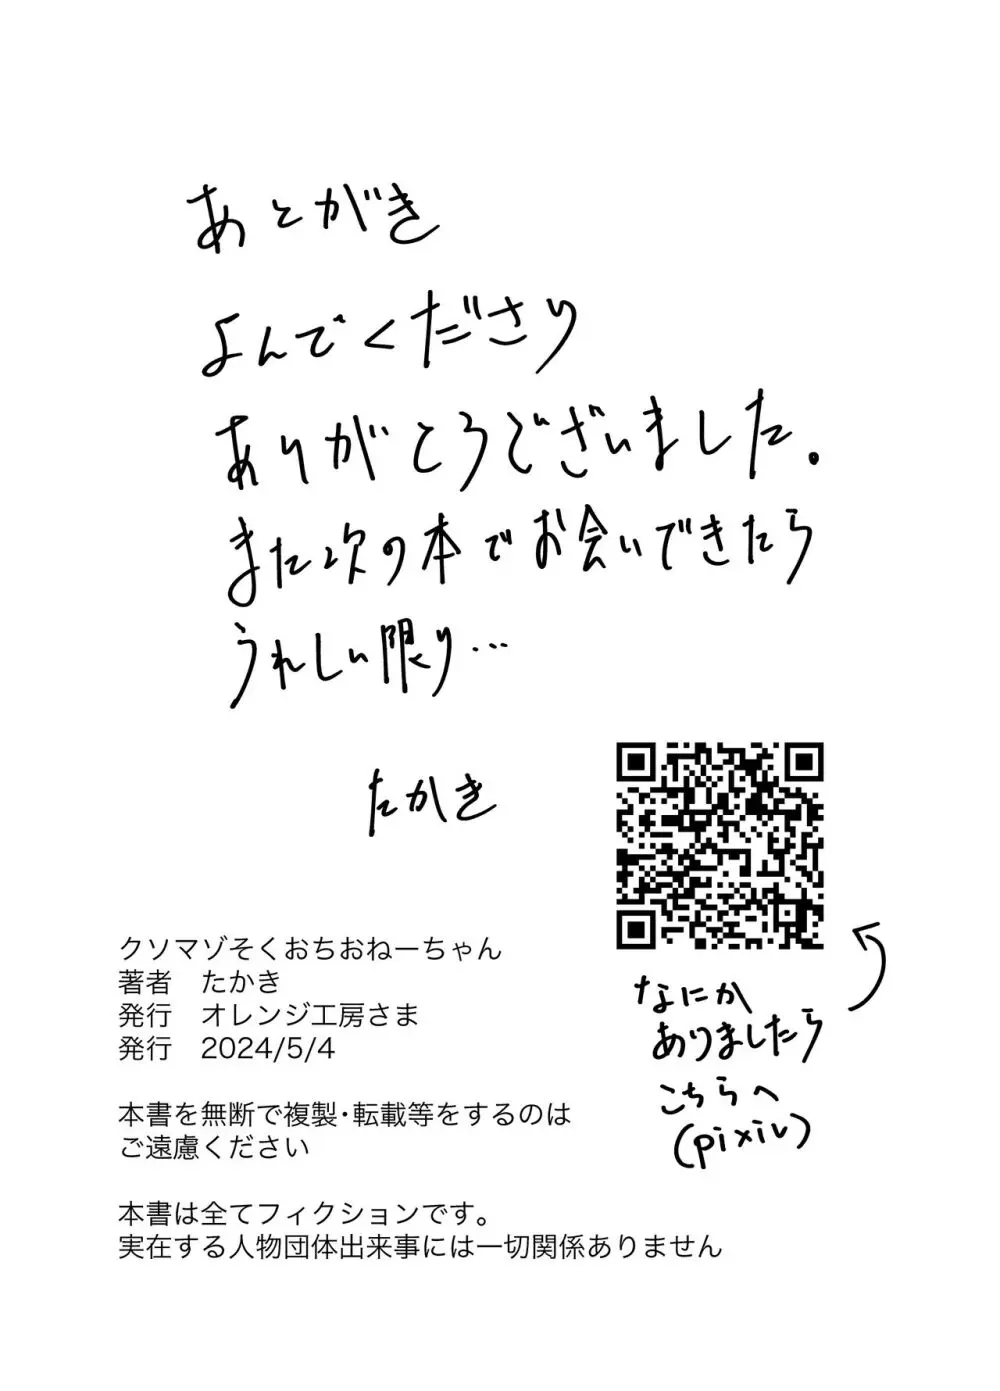 あとがき
よんでくださり
ありがとうございました。
また次の本でお会いできたら
うれしい限り…
たかき
クソマゾそくおちおねーちゃん
著者　たかき
発行　オレンジ工房さま
発行　2024/5/4
本書を無断で複製・転載等をするのは
ご遠慮ください
本書は全てフィクションです。
実在する人物団体出来事には一切関係ありません
なにか
ありましたら
こちらへ
(pixiv)